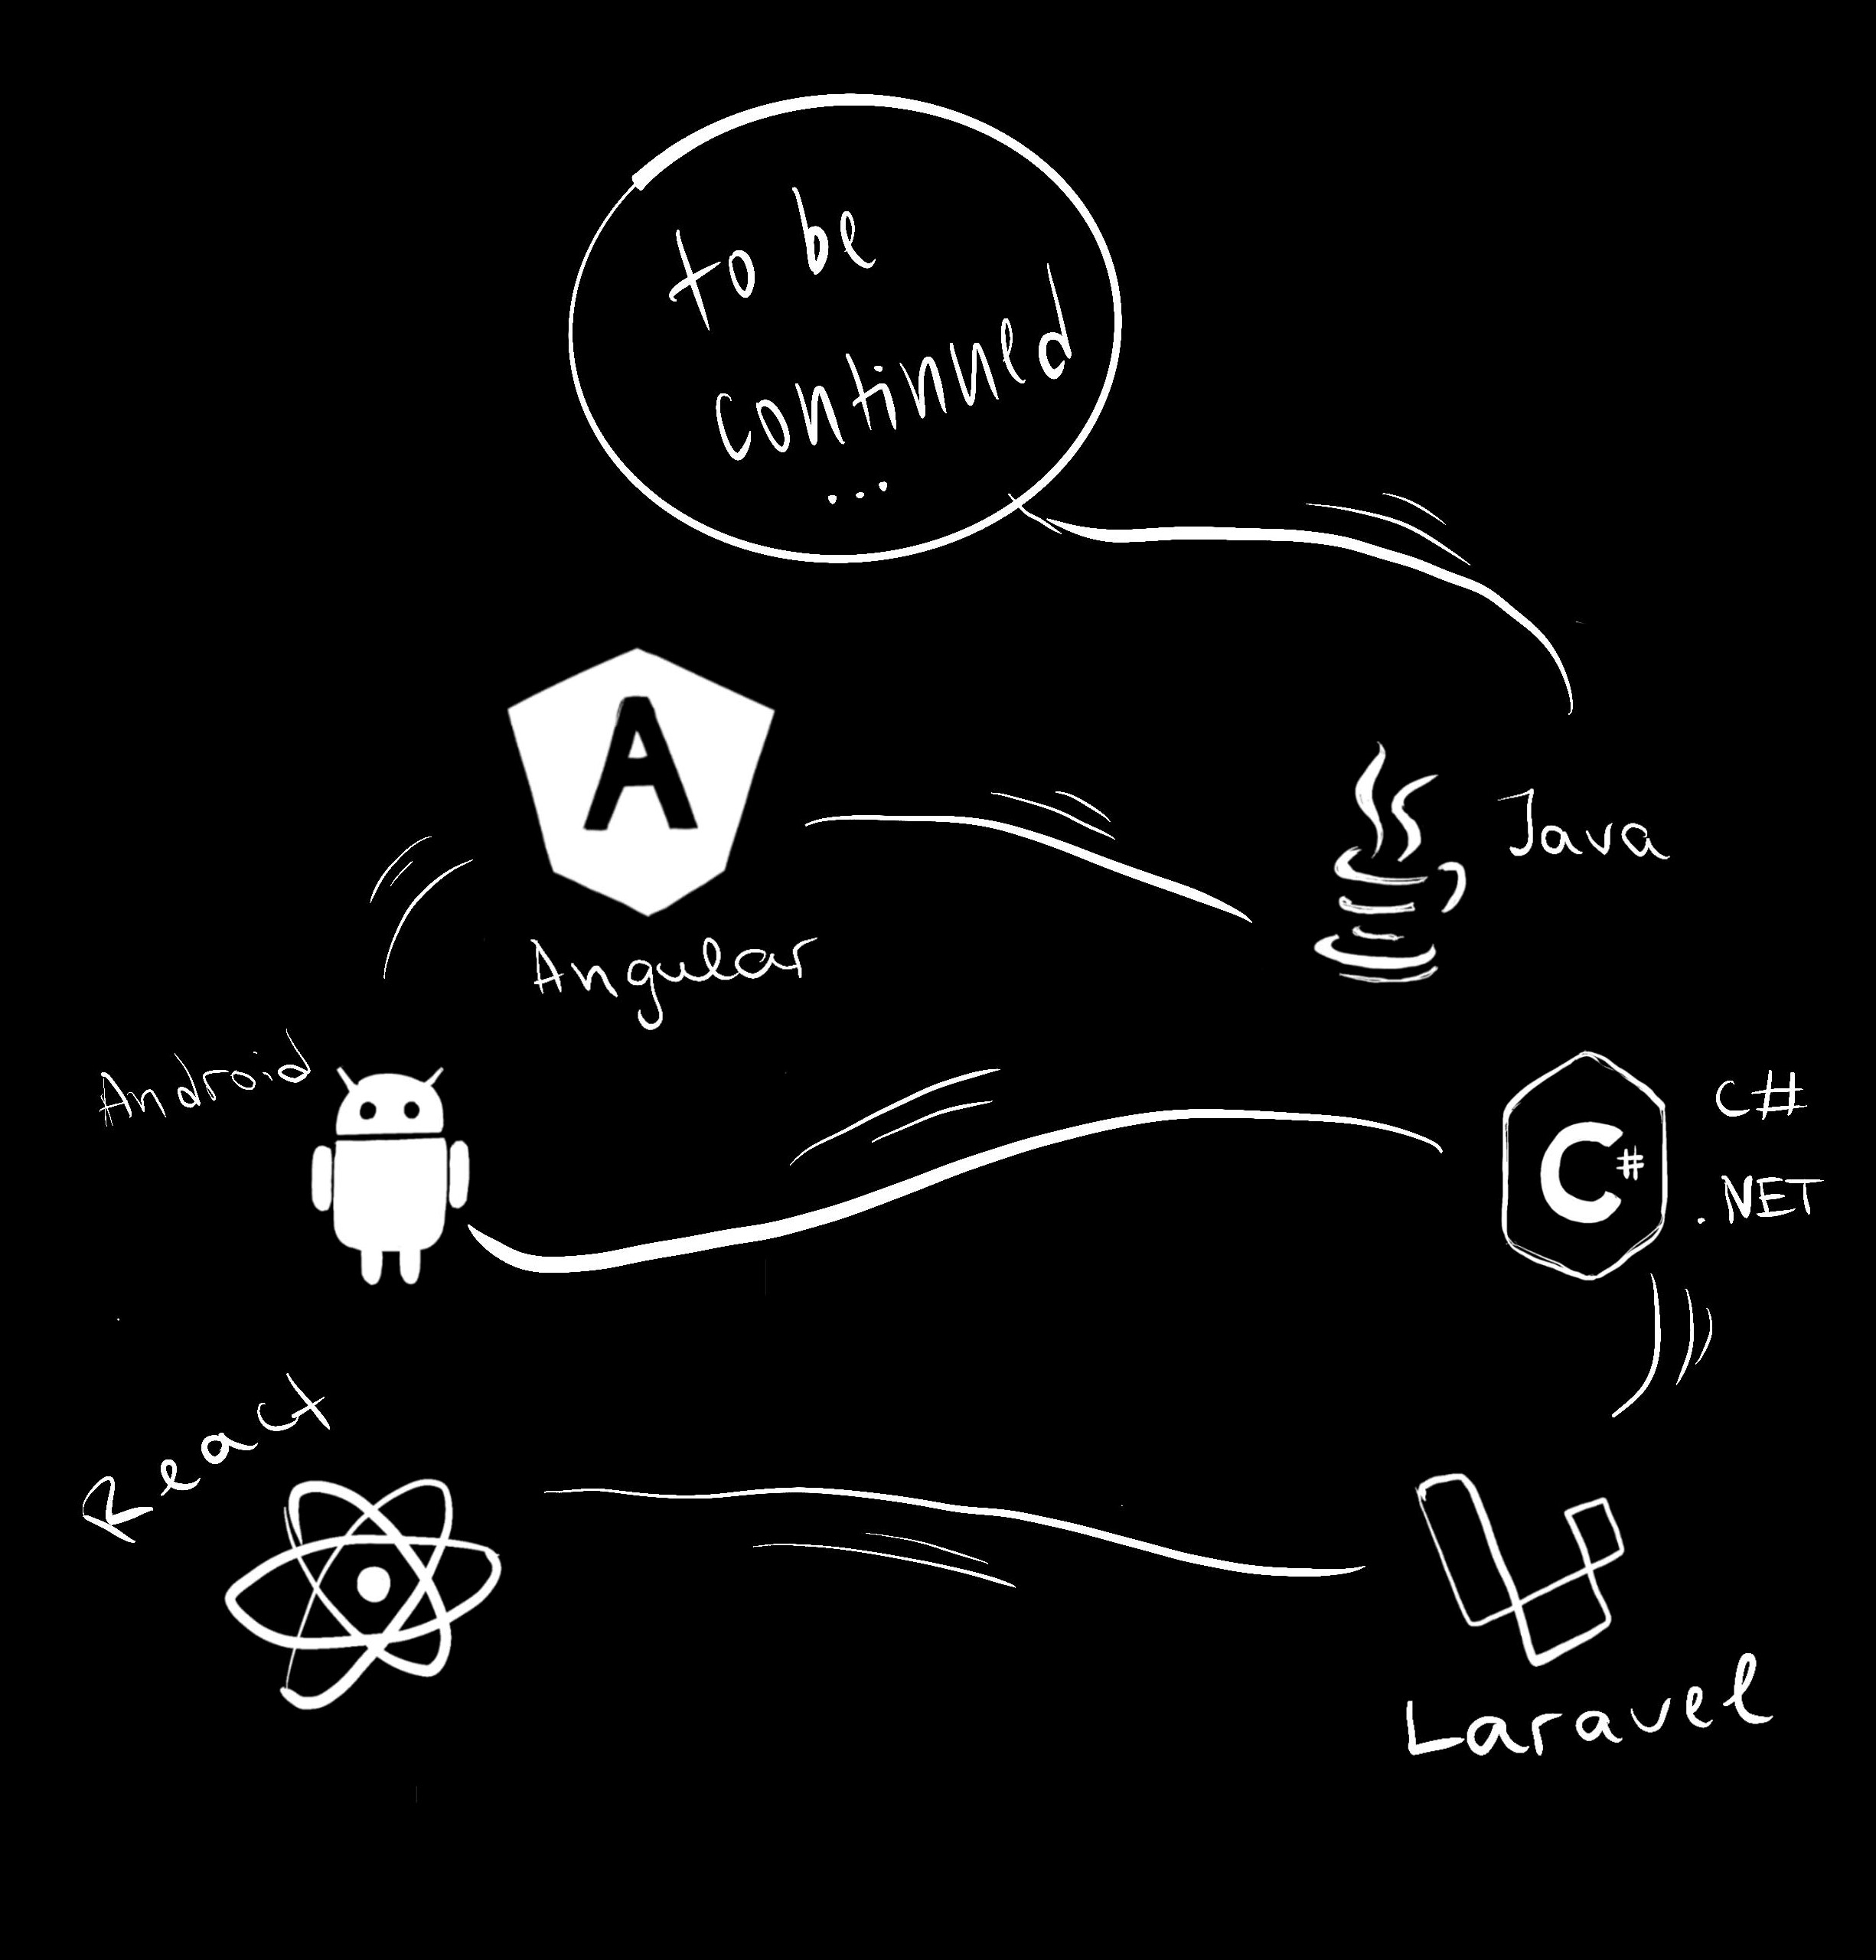 to be
continued
...
A
Java
Angular
Android
C#
C#
.NET
React
Laravel